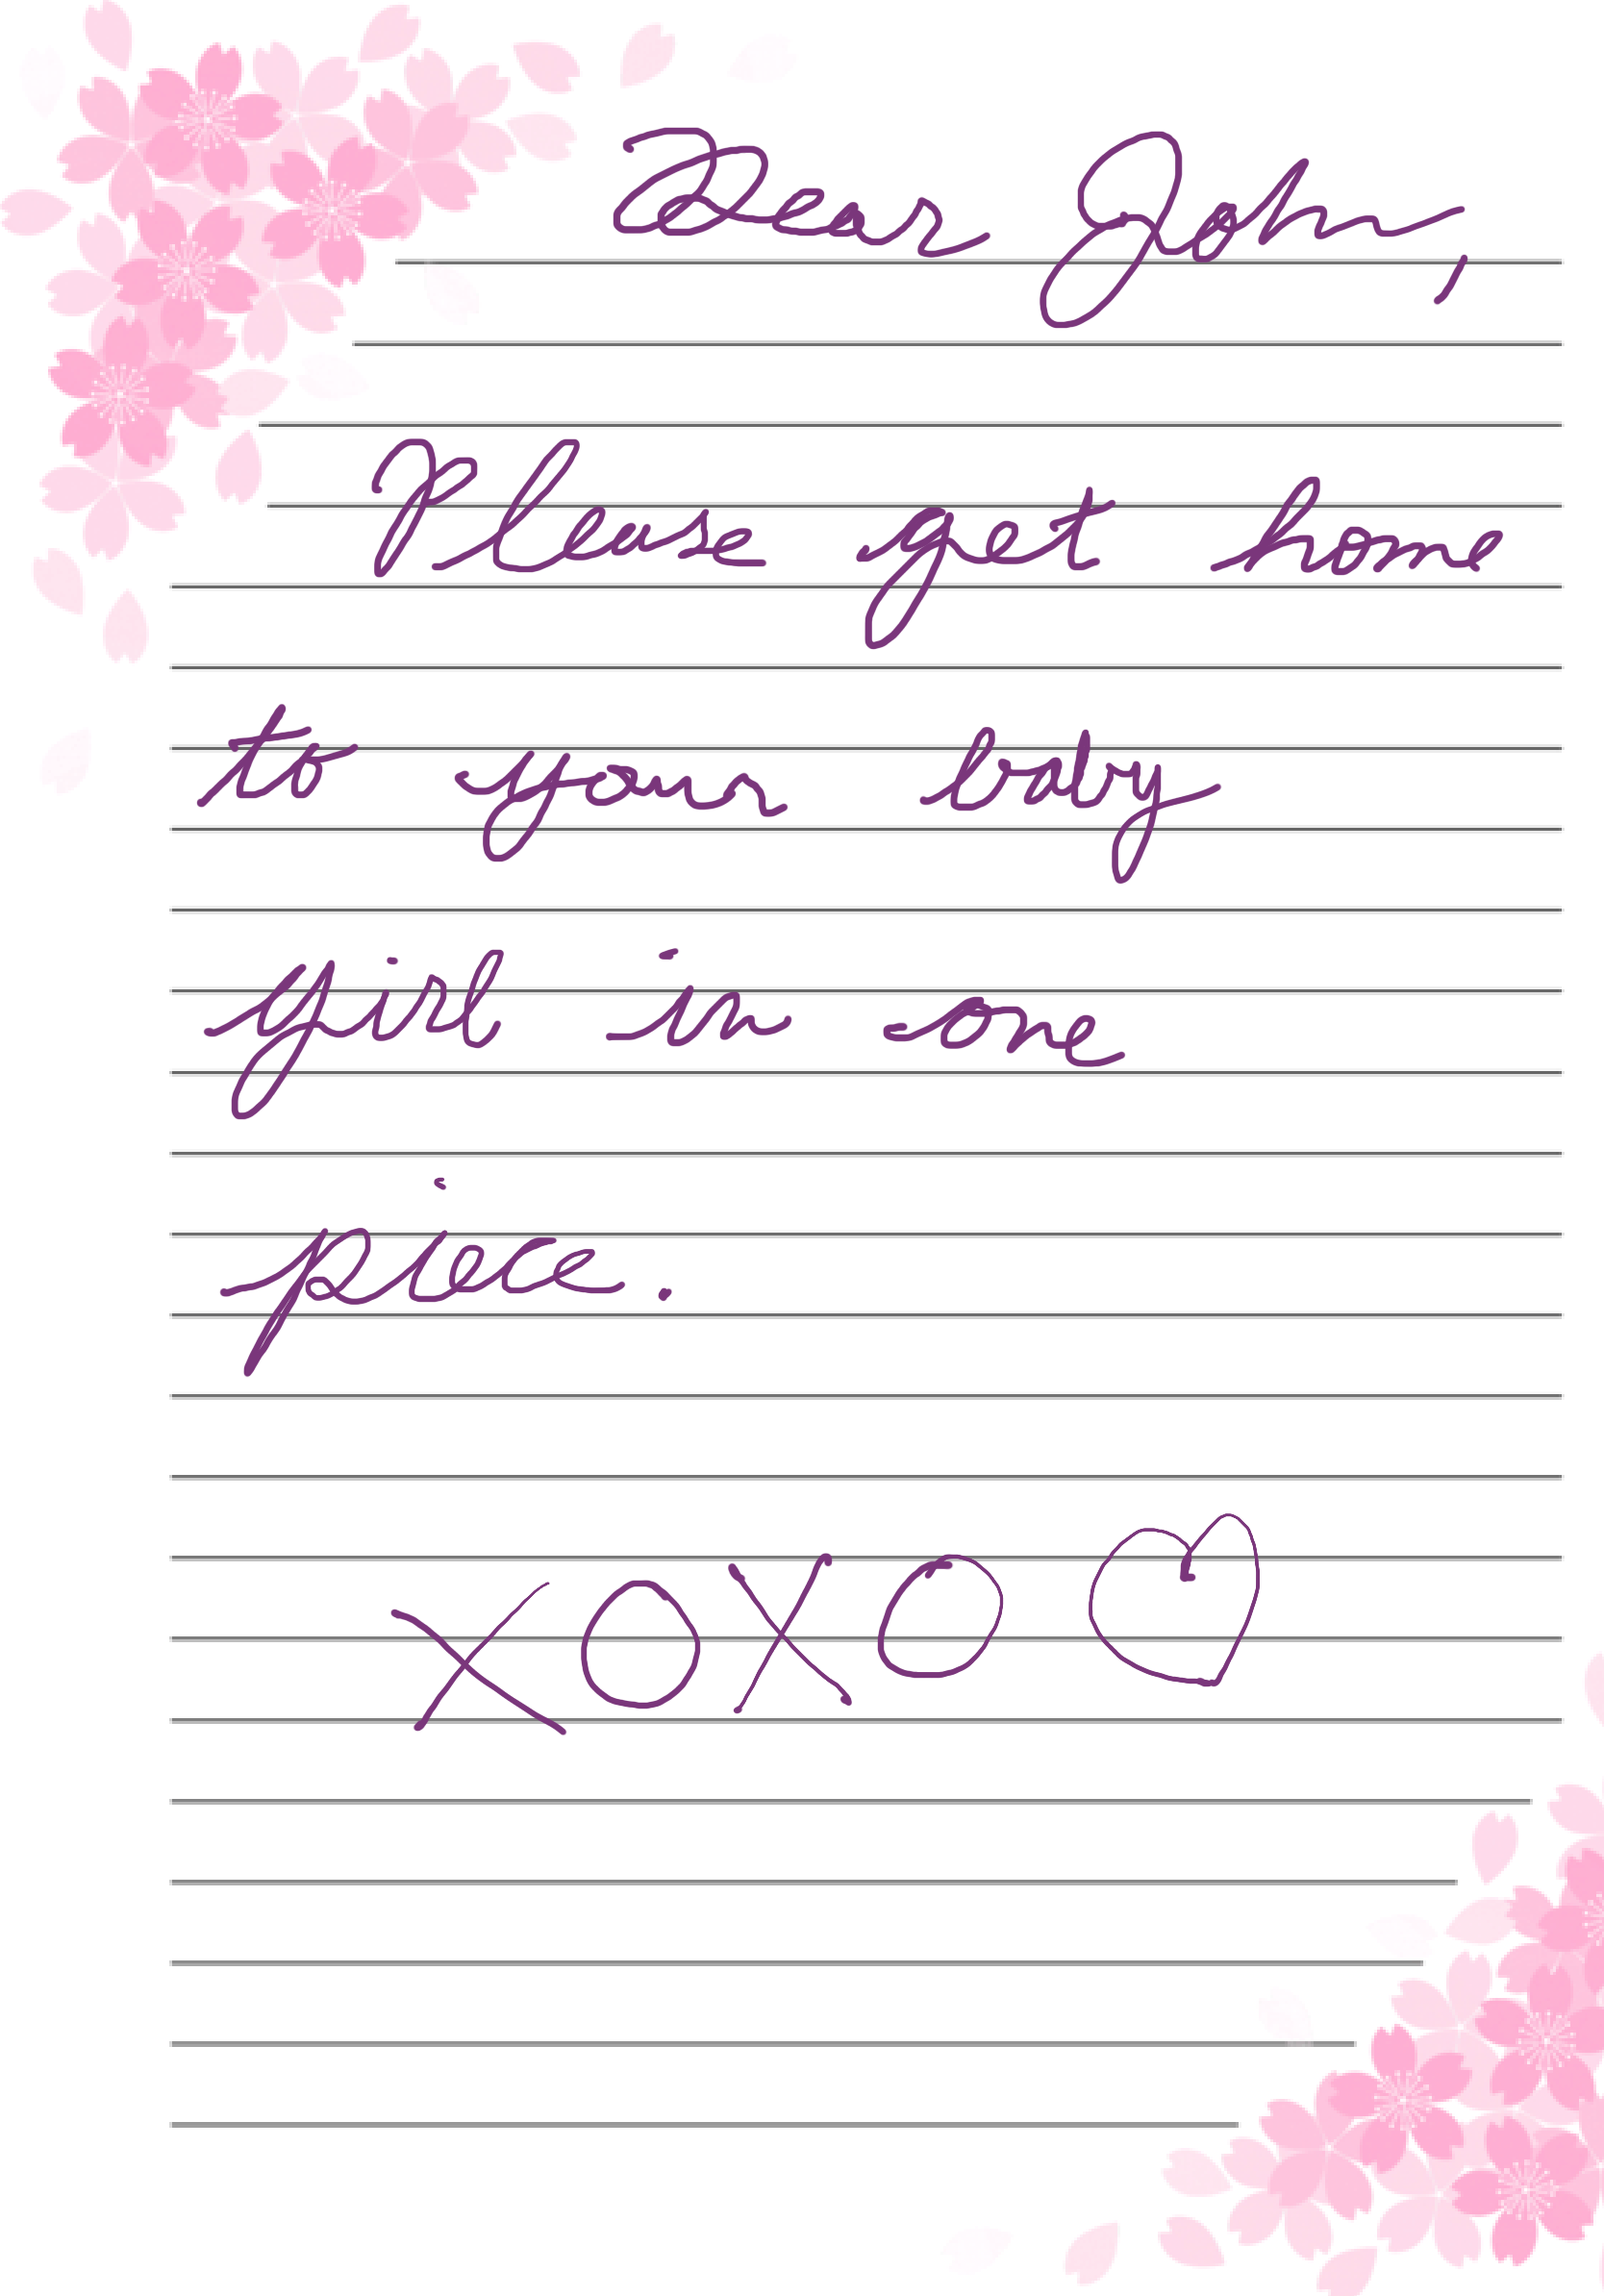 Dear John,
Please get home
to your baby
girl in one
piece.
XOXO♡